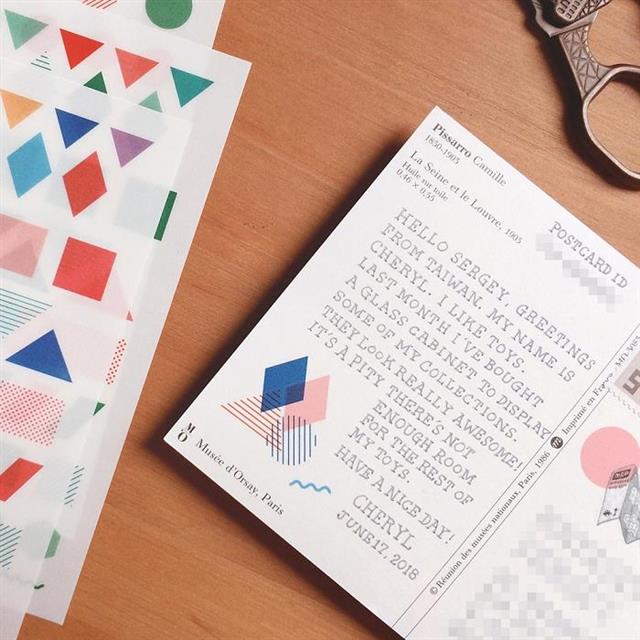 Pissarro Camille
1830-1903
La Seine et le Louvre, 1903
Huile sur toile
0,46 × 0,55
POSTCARD ID
HELLO SERGEY, GREETINGS
FROM TAIWAN. MY NAME IS
CHERYL. I LIKE TOYS.
LAST MONTH I'VE BOUGHT
A GLASS CABINET TO DISPLAY
SOME OF MY COLLECTIONS.
THEY LOOK REALLY AWESOME!
IT'S A PITY THERE'S NOT
ENOUGH ROOM
FOR THE REST OF
MY TOYS.
HAVE A NICE DAY!
CHERYL
JUNE 17, 2018
M
O
Musée d'Orsay, Paris
© Réunion des musées nationaux, Paris, 1986
Imprimé en France